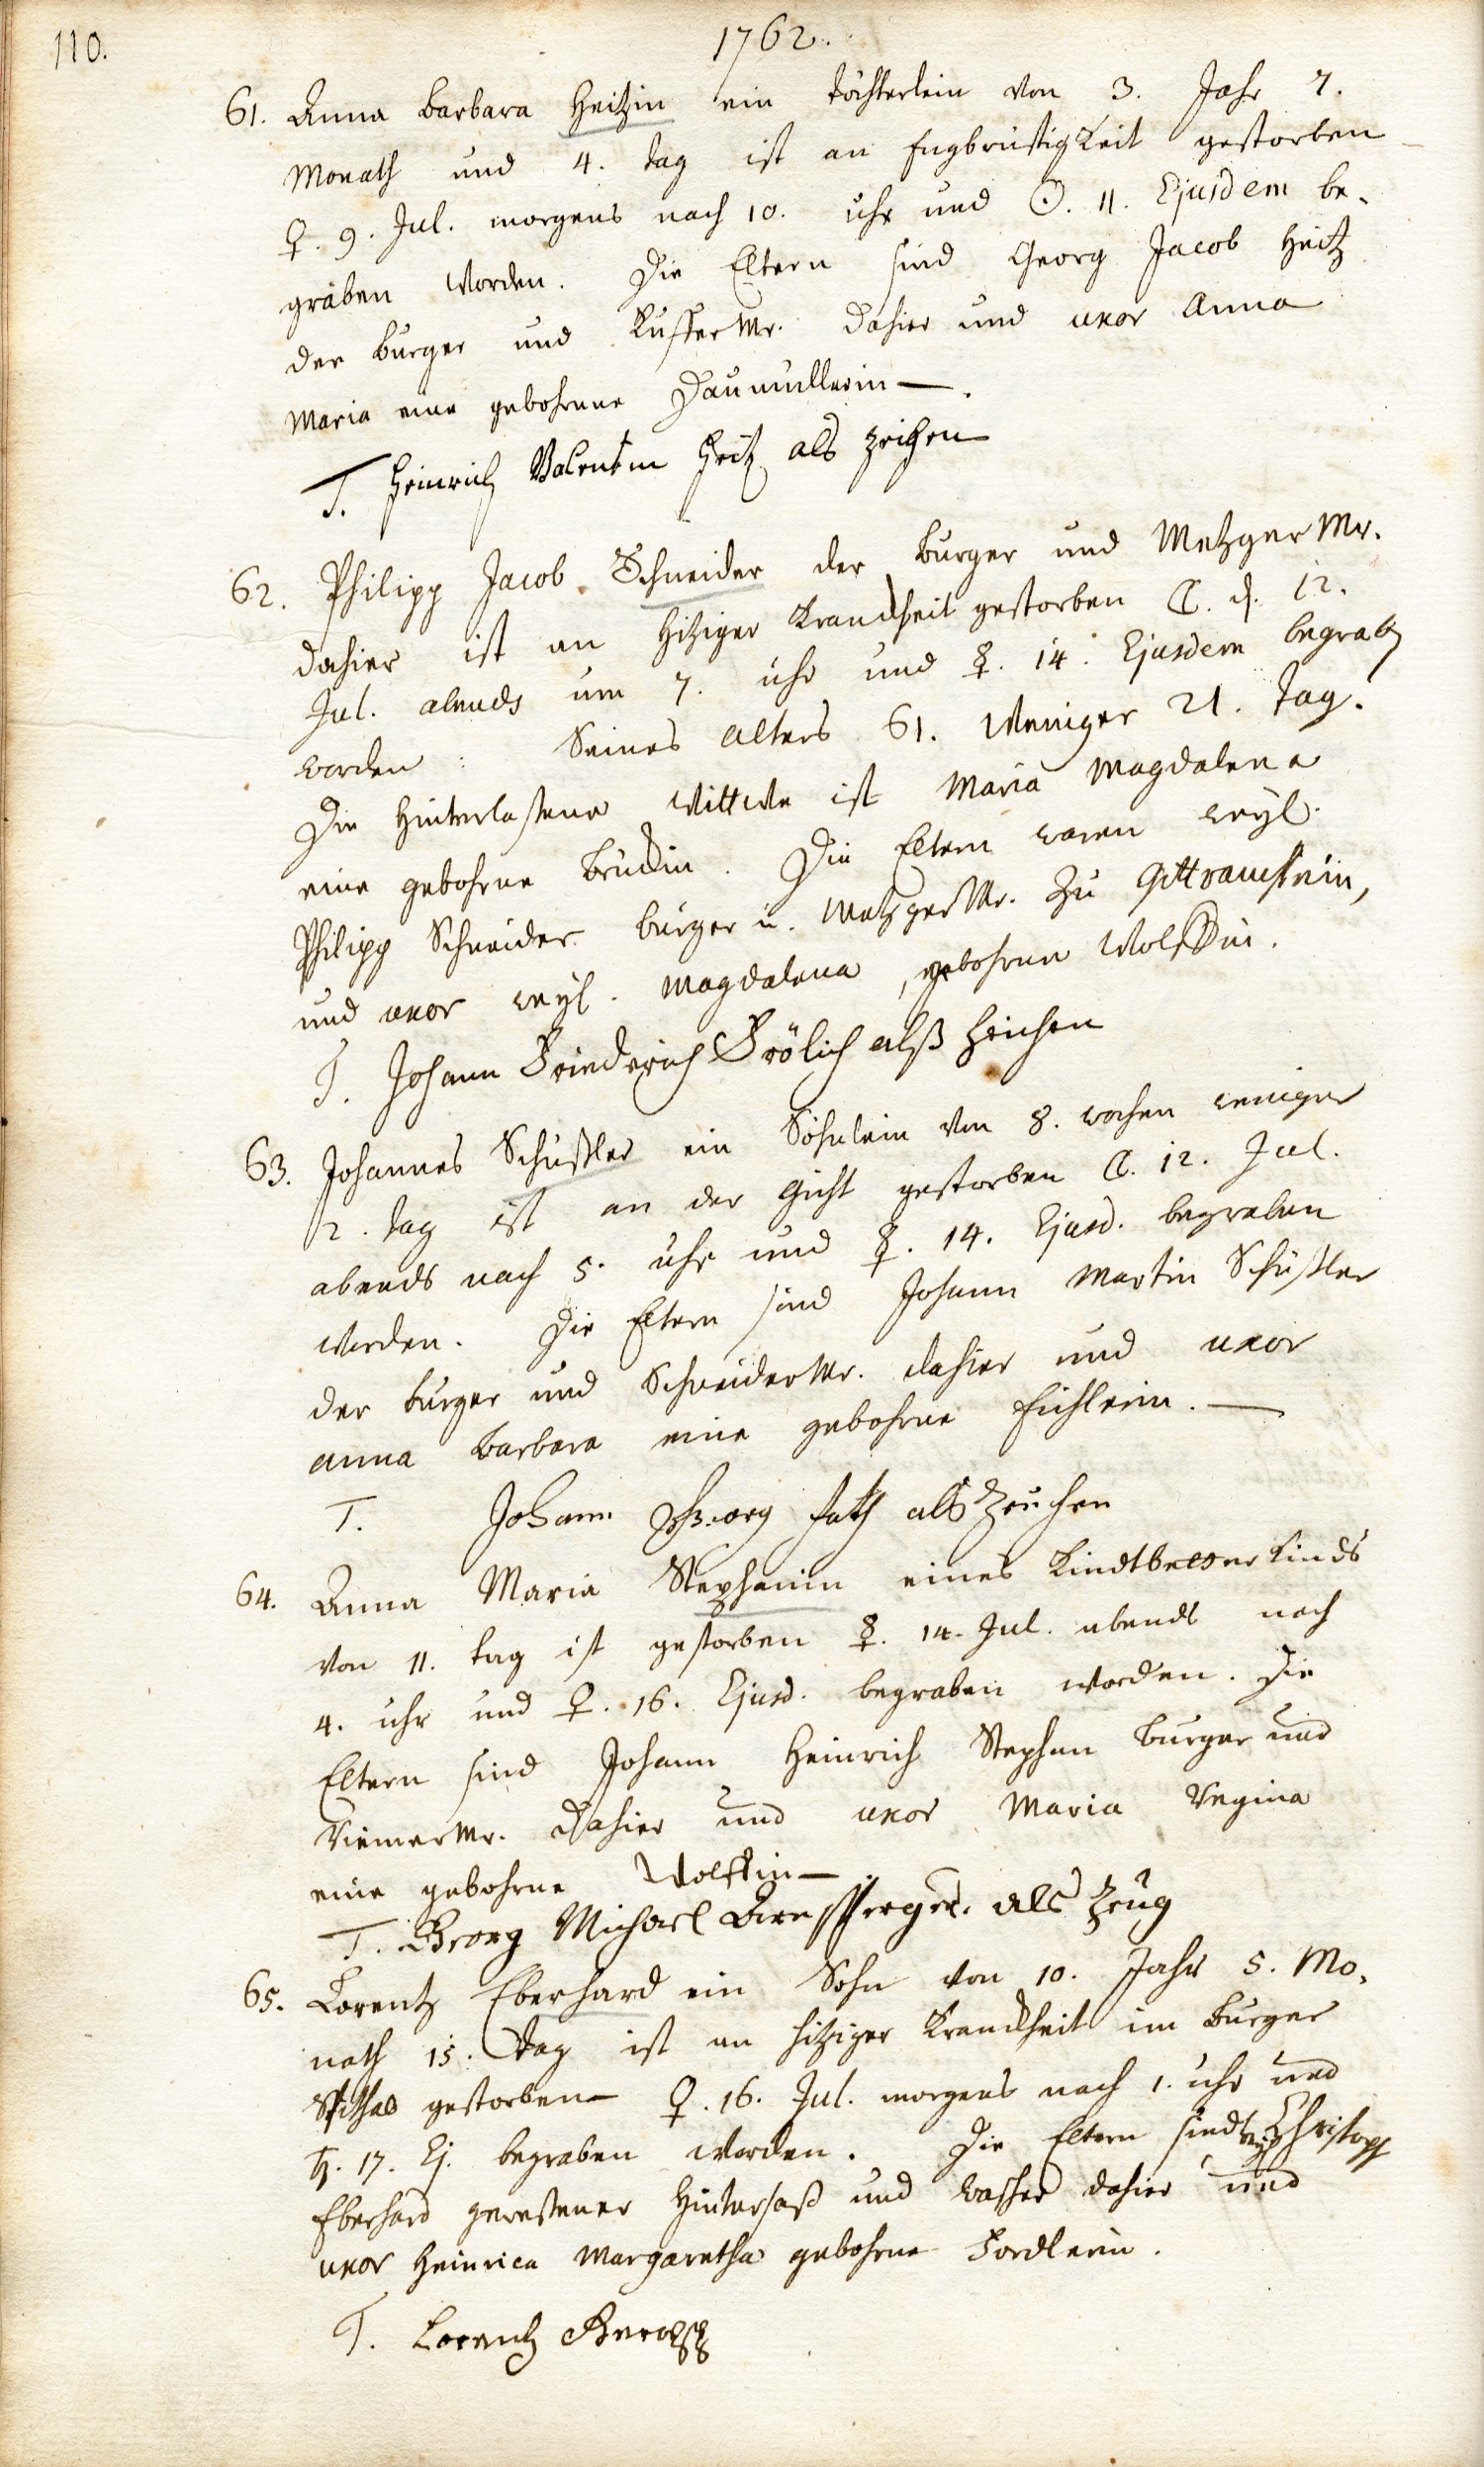 110. 1762.
61. Anna Barbara Heitzin ein Töchterlein von 3. Jahr 7.
Monath und 4. tag ist an Engbrüstigkeit gestorben
♀. 9. Jul. morgens nach 10. uhr und ☉. 11. Ejusdem be-
graben worden. Die Eltern sind Georg Jacob Heitz
der burger und KufferMr. dahier und uxor Anna
Maria eine gebohrene Daumüllerin —.
T. Heinrich Valentin Heitz als zeichen
62. Philipp Jacob Schneider der burger und MetzgerMr.
dahier ist an hitziger Kranckheit gestorben ☾. d. 12.
Jul. abends um 7. uhr und ☿. 14. Ejusdem begrab
worden: Seines alters 61. weniger 21. tag.
Die hinterlaßene Wittwe ist Maria Magdalena
eine gebohrne . Die Eltern waren weyl.
Philipp Schneider burger u. MetzgerMr. zu
und uxor weyl. Magdalena, gebohrne Wolffin.
T. Johann Friederich Frölich alß Zeichen
63. Johannes Schüßler ein Söhnlein von 8. wochen weniger
2. tag ist an der Gicht gestorben ☾. 12. Jul.
abends nach 5. uhr und ☿. 14. Ejusd. begraben
worden. Die Eltern sind Johann Martin Schüßler
der burger und SchneiderMr. dahier und uxor
anna Barbara eine gebohrne Eichlerin. —
T. Johann Georg als Zeuchen
64. Anna Maria Stephanin eines Kindtbetter Kinds
von 11. tag ist gestorben ☿. 14. Jul. abends nach
4. uhr und ♀. 16. Ejusd. begraben worden. Die
Eltern sind Johann Heinrich Stephan burger und
RiemerMr. dahier und uxor Maria Regina
eine gebohrne Wolffin —.
T. Georg Michael als Zeug
65. Lorentz Eberhard ein Sohn von 10. Jahr 5. Mo-
nath 15. tag ist an hitziger Kranckheit im burger
Spithal gestorben ♀. 16. Jul. morgens nach 1. uhr und
♄. 17. Ej. begraben worden. Die Eltern sind weyl Christoph
Eberhard gewesener hintersaß und dahier und
uxor Heinrica Margaretha gebohrne .
T. Lorentz